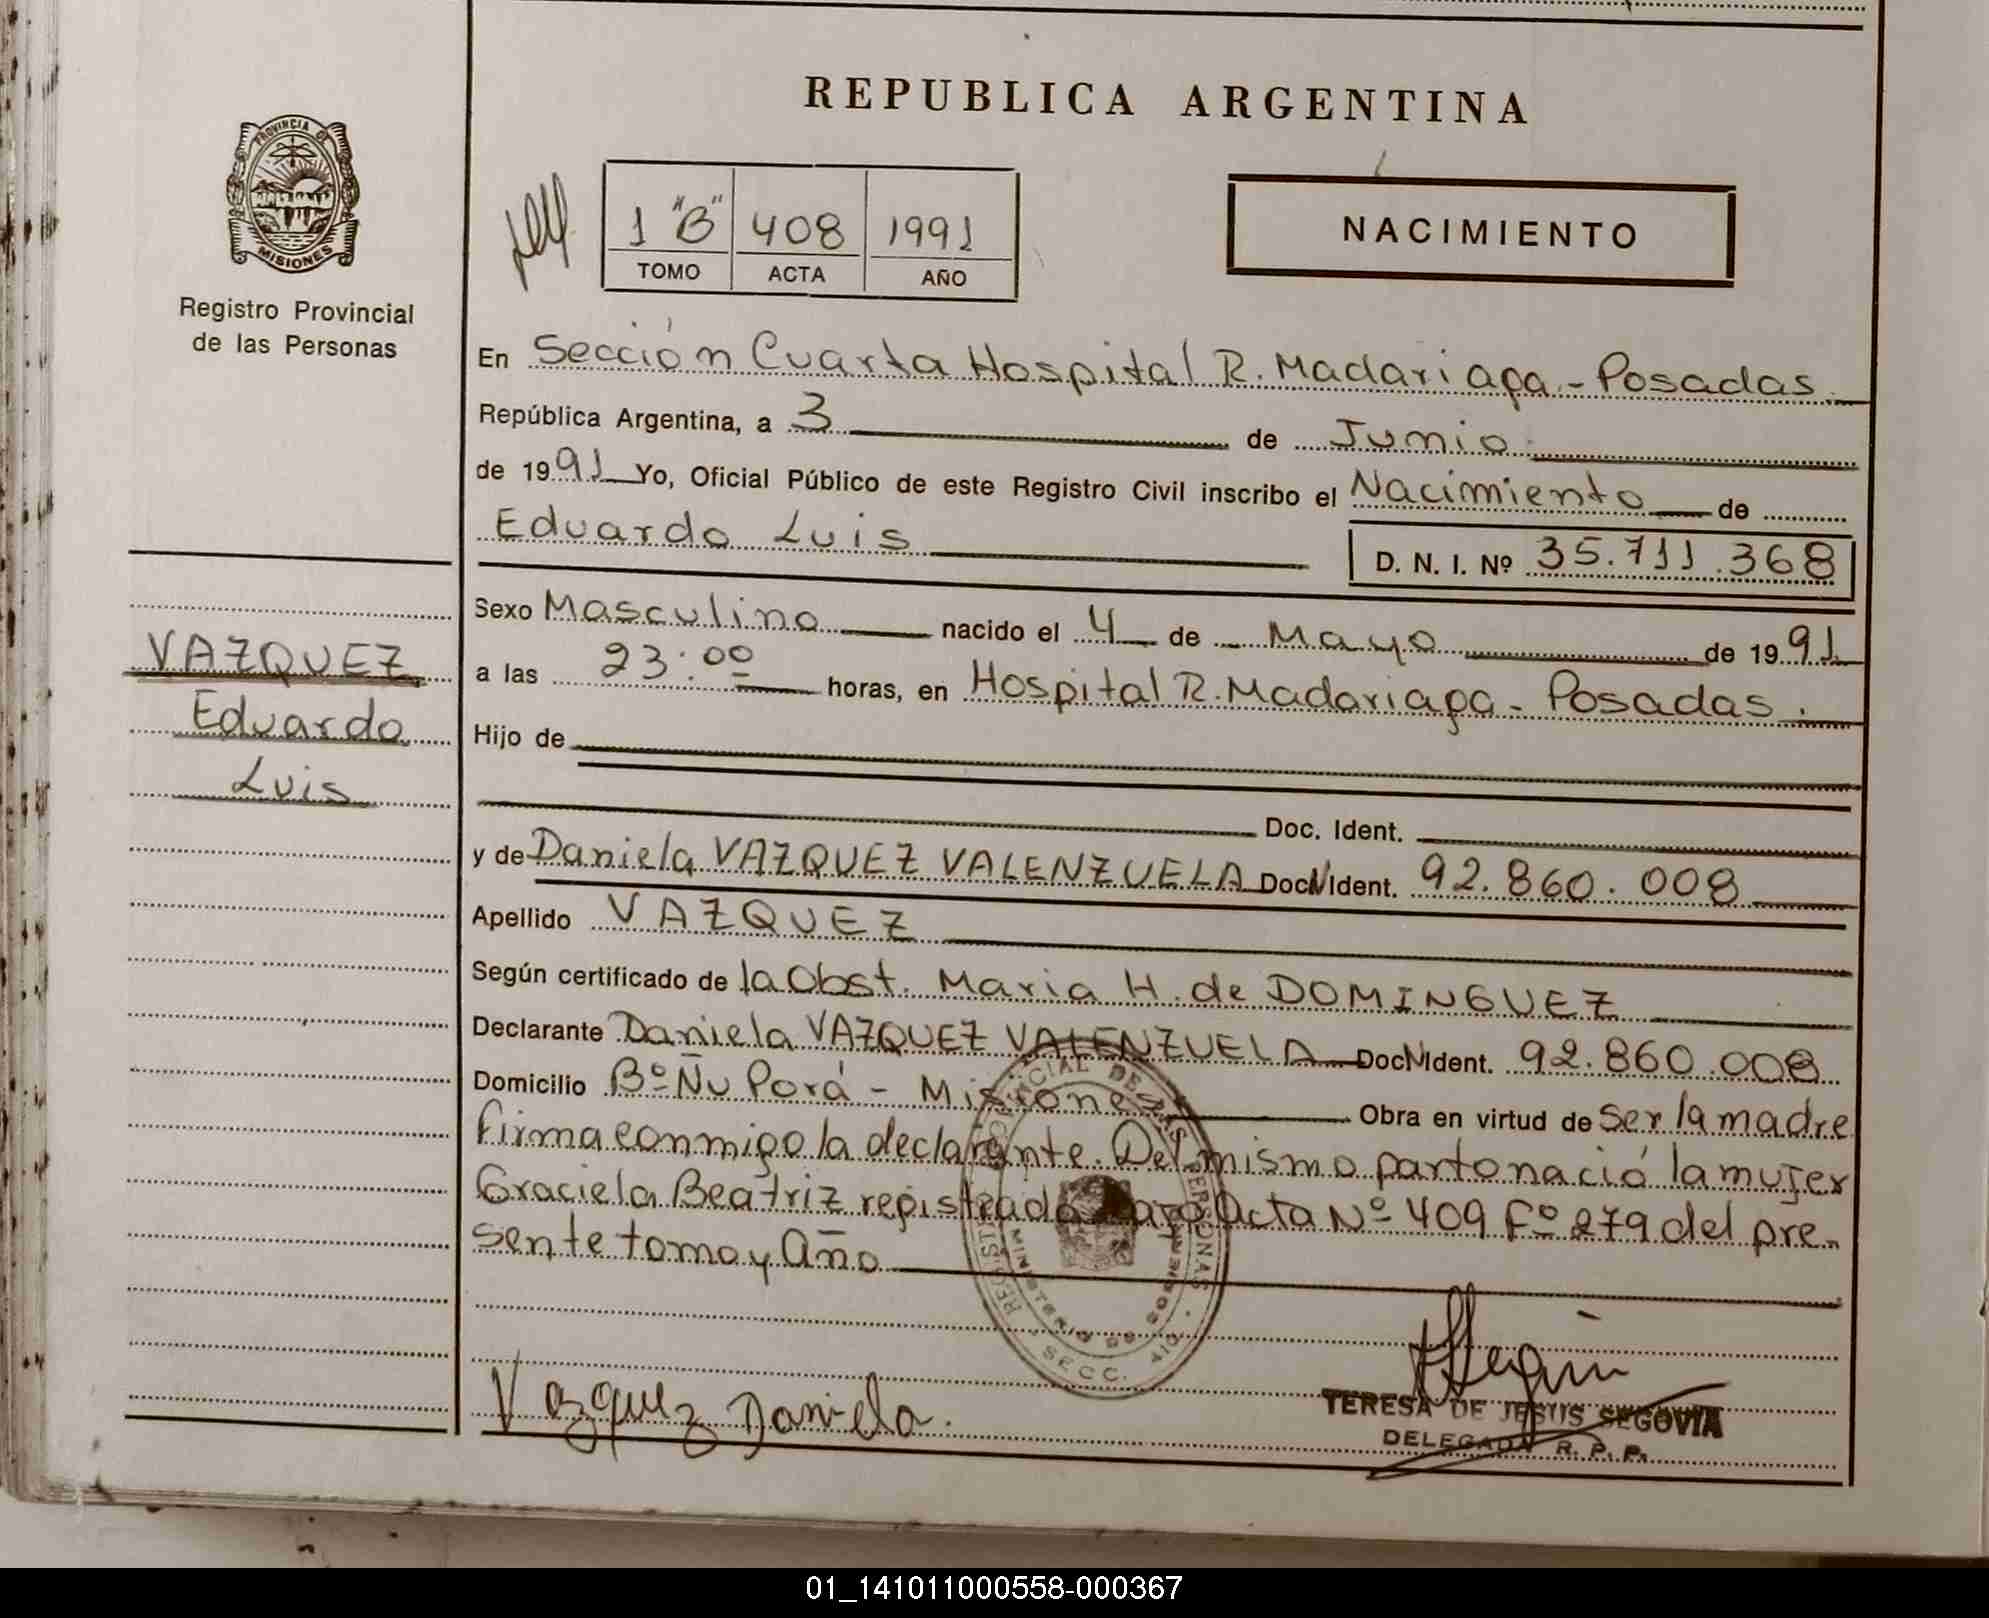 REPUBLICA ARGENTINA
PROVINCIA DE
MISIONES
Registro Provincial
de las Personas
1 "B" 408 1991
TOMO ACTA AÑO
NACIMIENTO
En Sección Cuarta Hospital R. Madariaga - Posadas.
República Argentina, a 3 de Junio
de 1991 Yo, Oficial Público de este Registro Civil inscribo el Nacimiento de
Eduardo Luis
D. N. I. Nº 35.711.368
VAZQUEZ
Eduardo
Luis
Sexo Masculino nacido el 4 de Mayo de 1991
a las 23:00 horas, en Hospital R. Madariaga - Posadas.
Hijo de
Doc. Ident.
y de Daniela VAZQUEZ VALENZUELA Doc. N Ident. 92.860.008
Apellido VAZQUEZ
Según certificado de la Obst. Maria H. de DOMINGUEZ
Declarante Daniela VAZQUEZ VALENZUELA Doc N Ident. 92.860.008
Domicilio Bº Ñu Porá - Misiones Obra en virtud de ser la madre
firma conmigo la declarante. Del mismo parto nació la mujer
Graciela Beatriz registrada bajo Acta Nº 409 Fº 279 del pre-
sente tomo y Año
REGISTRO PROVINCIAL DE LAS PERSONAS
MINISTERIO DE GOBIERNO
SECC. 4ta
Vazquez Daniela.
TERESA DE JESUS SEGOVIA
DELEGADA R. P. P.
01_141011000558-000367